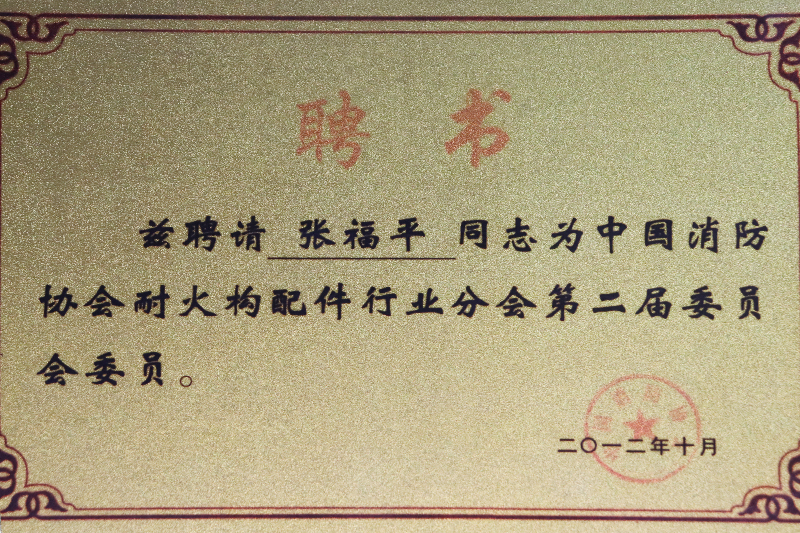 聘书
兹聘请 张福平 同志为中国消防
协会耐火构配件行业分会第二届委员
会委员。
二〇一二年十月